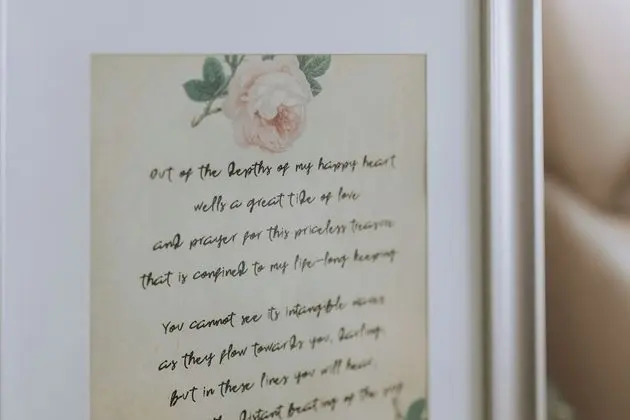 Out of the depths of my happy heart
wells a great tide of love
and prayer for this priceless treasure
that is confined to my life-long keeping
You cannot see its intangible waves
as they flow towards you, darling,
But in these lines you will hear,
the distant beating of the